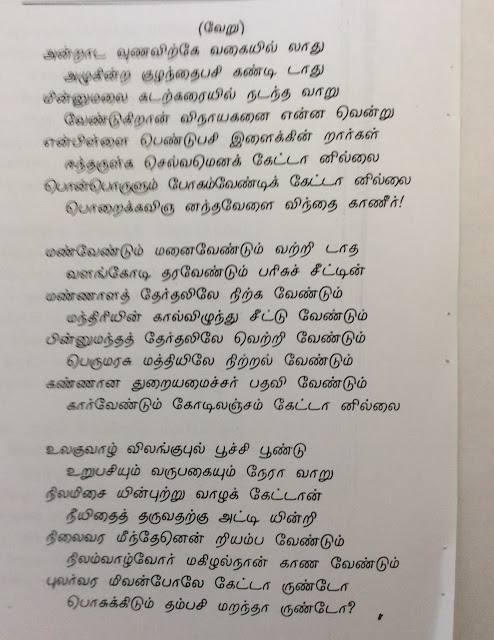 (வேறு)
அன்றாட வுணவிற்கே வகையில் லாது
அழுகின்ற குழந்தைபசி கண்டி டாது
மின்னுமலை கடற்கரையில் நடந்த வாறு
வேண்டுகிறான் விநாயகனை என்ன வென்று
என்பிள்ளை பெண்டுபசி இளைக்கின் றார்கள்
ஈந்தருள்க செல்வமெனக் கேட்டா னில்லை
பொன்பொருளும் போகம்வேண்டிக் கேட்டா னில்லை
பொறைக்கவிஞ னந்தவேளை விந்தை காணீர்!
மண்வேண்டும் மனைவேண்டும் வற்றி டாத
வளங்கோடி தரவேண்டும் பரிசுச் சீட்டின்
மண்ணாளத் தேர்தலிலே நிற்க வேண்டும்
மந்திரியின் கால்விழுந்து சீட்டு வேண்டும்
பின்னுமந்தத் தேர்தலிலே வெற்றி வேண்டும்
பெருமரசு மத்தியிலே நிற்றல் வேண்டும்
கண்ணான துறையமைச்சர் பதவி வேண்டும்
கார்வேண்டும் கோடிலஞ்சம் கேட்டா னில்லை
உலகுவாழ் விலங்குபுல் பூச்சி பூண்டு
உறுபசியும் வருபகையும் நேரா வாறு
நிலமிசை யின்புற்று வாழக் கேட்டான்
நீயிதைத் தருவதற்கு அட்டி யின்றி
நிலைவர மீந்தேனென் றியம்ப வேண்டும்
நிலம்வாழ்வோர் மகிழல்நான் காண வேண்டும்
புலர்வர மிவன்போலே கேட்டா ருண்டோ
பொசுக்கிடும் தம்பசி மறந்தா ருண்டோ?